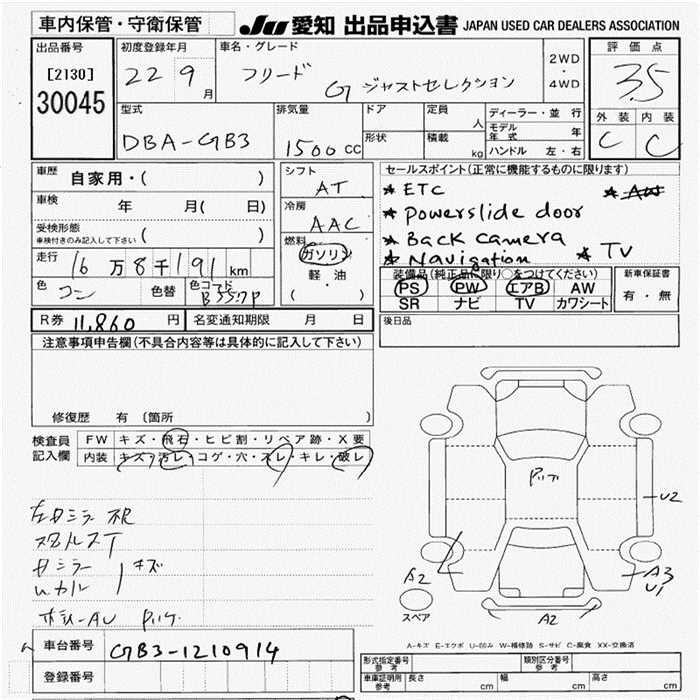 車内保管・守衛保管 JU 愛知 出品申込書 JAPAN USED CAR DEALERS ASSOCIATION
出品番号
[2130]
30045
初度登録年月
22 9月
車名・グレード
フリード G ジャストセレクション
2WD
・
4WD
評価点
3.5
外装 内装
C C
型式
DBA-GB3
排気量
1500 CC
ドア
形状
定員
人
積載
kg
ディーラー・並行
モデル年式 年
ハンドル 左・右
車歴
自家用・( )
車検
年 月( 日)
受検形態
車検付きのみ記入して下さい ( )
走行
16万8千191km
色
コン
色替
色コード
B557P
シフト
AT
冷房
AAC
燃料
ガソリン
軽油
( ・ )
セールスポイント(正常に機能するものに限ります)
★ ETC ★ AW
★ Powerslide door
★ Back camera
★ Navigation ★ TV
装備品(純正品に限り○をつけてください)
PS PW エアB AW
SR ナビ TV カワシート
新車保証書
有・無
R券 11,860 円
名変通知期限 月 日
後日品
注意事項申告欄(不具合内容等は具体的に記入して下さい)
修復歴 有 〔箇所
検査員記入欄
FW キズ・飛石・ヒビ割・リペア跡・X要
内装 キズ・汚レ・コゲ・穴・スレ・キレ・破レ
キズ
U2
A2
A3
U1
スペア
A2
A-キズ E-エクボ U-凹み W-補修跡 S-サビ C-腐食 XX-交換済
車台番号
GB3-1210914
登録番号
形式指定番号 参考
類別区分番号 参考
車庫証明 参考
長さ cm 幅 cm 高さ cm